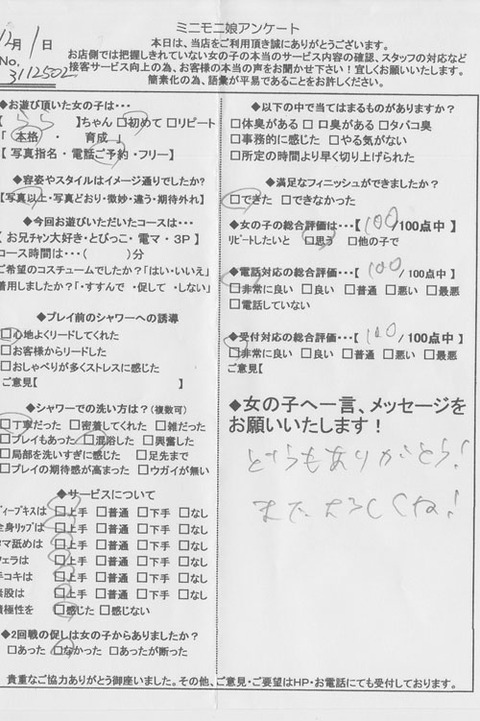 ミニモニ娘アンケート
12月1日
No.
3112502
本日は、当店をご利用頂き誠にありがとうございます。
お店側では把握しきれていない女の子の本当のサービス内容の確認、スタッフの対応など
接客サービス向上の為、お客様の本当の声をお聞かせ下さい！宜しくお願いいたします。
簡素化の為、語彙が平易であることをお許しください。
◆お遊び頂いた女の子は・・・
【 らら 】ちゃん □初めて □リピート
「 本格 ・ 育成 」
【 写真指名・電話ご予約・フリー】
◆容姿やスタイルはイメージ通りでしたか?
【写真以上・写真どおり・微妙・違う・期待外れ】
◆今回お遊びいただいたコースは・・・
【 お兄チャン大好き・とびっこ・電マ・3P 】
コース時間は・・・( )分
ご希望のコスチュームでしたか?「はい・いいえ」
着用しましたか?「・すすんで ・促して ・しない」
◆プレイ前のシャワーへの誘導
□心地よくリードしてくれた
□お客様からリードした
□おしゃべりが多くストレスに感じた
ご意見【 】
◆シャワーでの洗い方は？(複数可)
□丁寧だった □密着してくれた □雑だった
□プレイもあった □混浴した □興奮した
□局部を洗いすぎに感じた □足先まで
□プレイの期待感が高まった □ウガイが無い
◆サービスについて
ディープキスは □上手 □普通 □下手 □なし
全身リップは □上手 □普通 □下手 □なし
タマ舐めは □上手 □普通 □下手 □なし
フェラは □上手 □普通 □下手 □なし
手コキは □上手 □普通 □下手 □なし
素股は □上手 □普通 □下手 □なし
積極性を □感じた □感じない
◆2回戦の促しは女の子からありましたか？
□あった □なかった □あったが断った
◆以下の中で当てはまるものがありますか？
□体臭がある □口臭がある □タバコ臭
□事務的に感じた □やる気がない
□所定の時間より早く切り上げられた
◆満足なフィニッシュができましたか?
□できた □できなかった
◆女の子の総合評価は・・・【 100 /100点中 】
リピートしたいと □思う □他の子で
◆電話対応の総合評価・・・【 100 /100点中 】
□非常に良い □良い □普通 □悪い □最悪
□電話していない
◆受付対応の総合評価・・・【 100 /100点中 】
□非常に良い □良い □普通 □悪い □最悪
ご意見【 】
◆女の子へ一言、メッセージを
お願いいたします！
どうもありがとう！
また よろしくね！
貴重なご協力ありがとう御座いました。その他、ご意見・ご要望はHP・お電話にても受付しております。